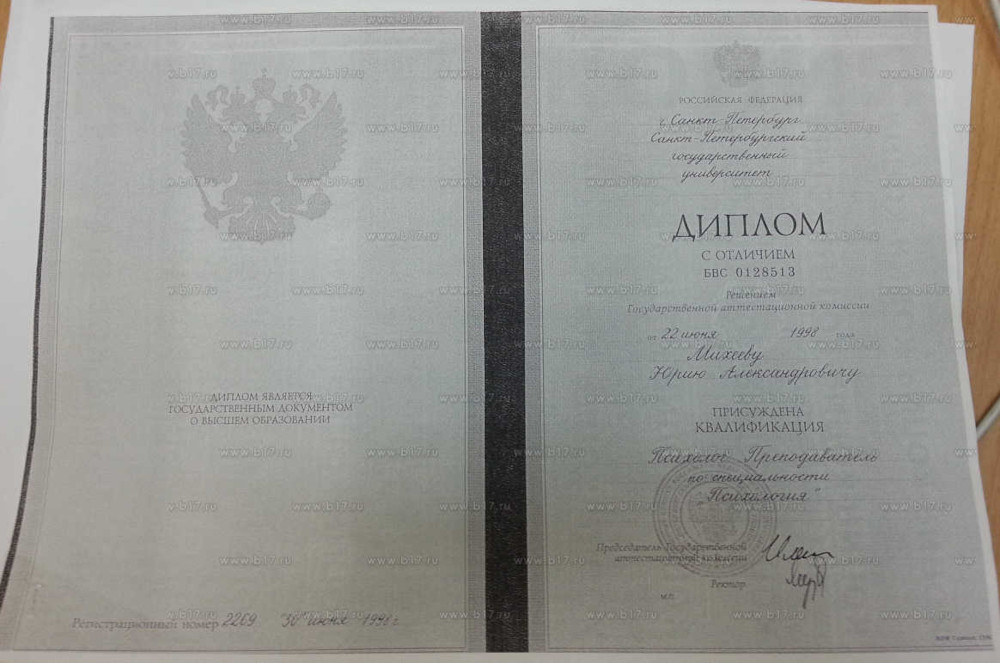 ДИПЛОМ ЯВЛЯЕТСЯ
ГОСУДАРСТВЕННЫМ ДОКУМЕНТОМ
О ВЫСШЕМ ОБРАЗОВАНИИ
Регистрационный номер 2269 "30" июня 1998 г.
РОССИЙСКАЯ ФЕДЕРАЦИЯ
г. Санкт-Петербург
Санкт-Петербургский
государственный
университет
ДИПЛОМ
С ОТЛИЧИЕМ
БВС 0128513
Решением
Государственной аттестационной комиссии
от 22 июня 1998 года
Михееву
Юрию Александровичу
ПРИСУЖДЕНА
КВАЛИФИКАЦИЯ
Психолог. Преподаватель
по специальности
"Психология"
Председатель Государственной
аттестационной комиссии
Ректор
М.П.
www.b17.ru